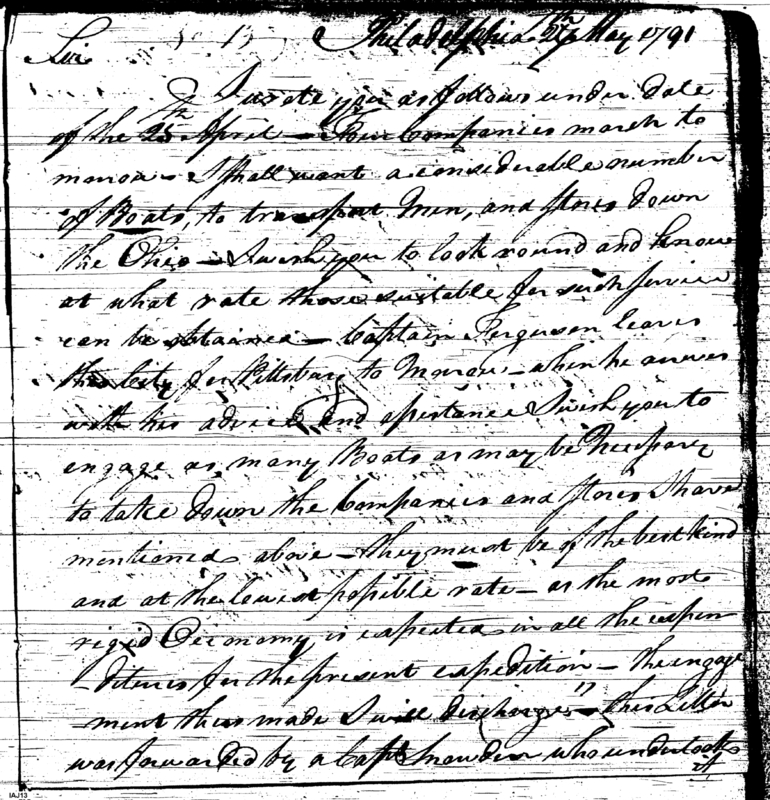 Philadelphia 27th May 1791
Sir
I wrote you as follows under date
of the 25th April — Four Companies march to
morrow — I shall want a considerable number
of Boats, to transport Men, and stores down
the Ohio — I wish you to look round and know
at what rate those suitable for such service
can be obtained — Captain Ferguson leaves
this City for Pittsburg to Morrow — when he arrives
with his advice and assistance I wish you to
engage as many Boats as may be Necessary
to take down the Companies and stores I have
mentioned above — they must be of the best kind
and at the lowest possible rate — as the most
rigid Oeconomy is expected in all the expen
-ditures for the present expedition — the engage
-ment thus made I will discharge" — this Letter
was forwarded by a Capt Snowden who undertook
it
IAJ13